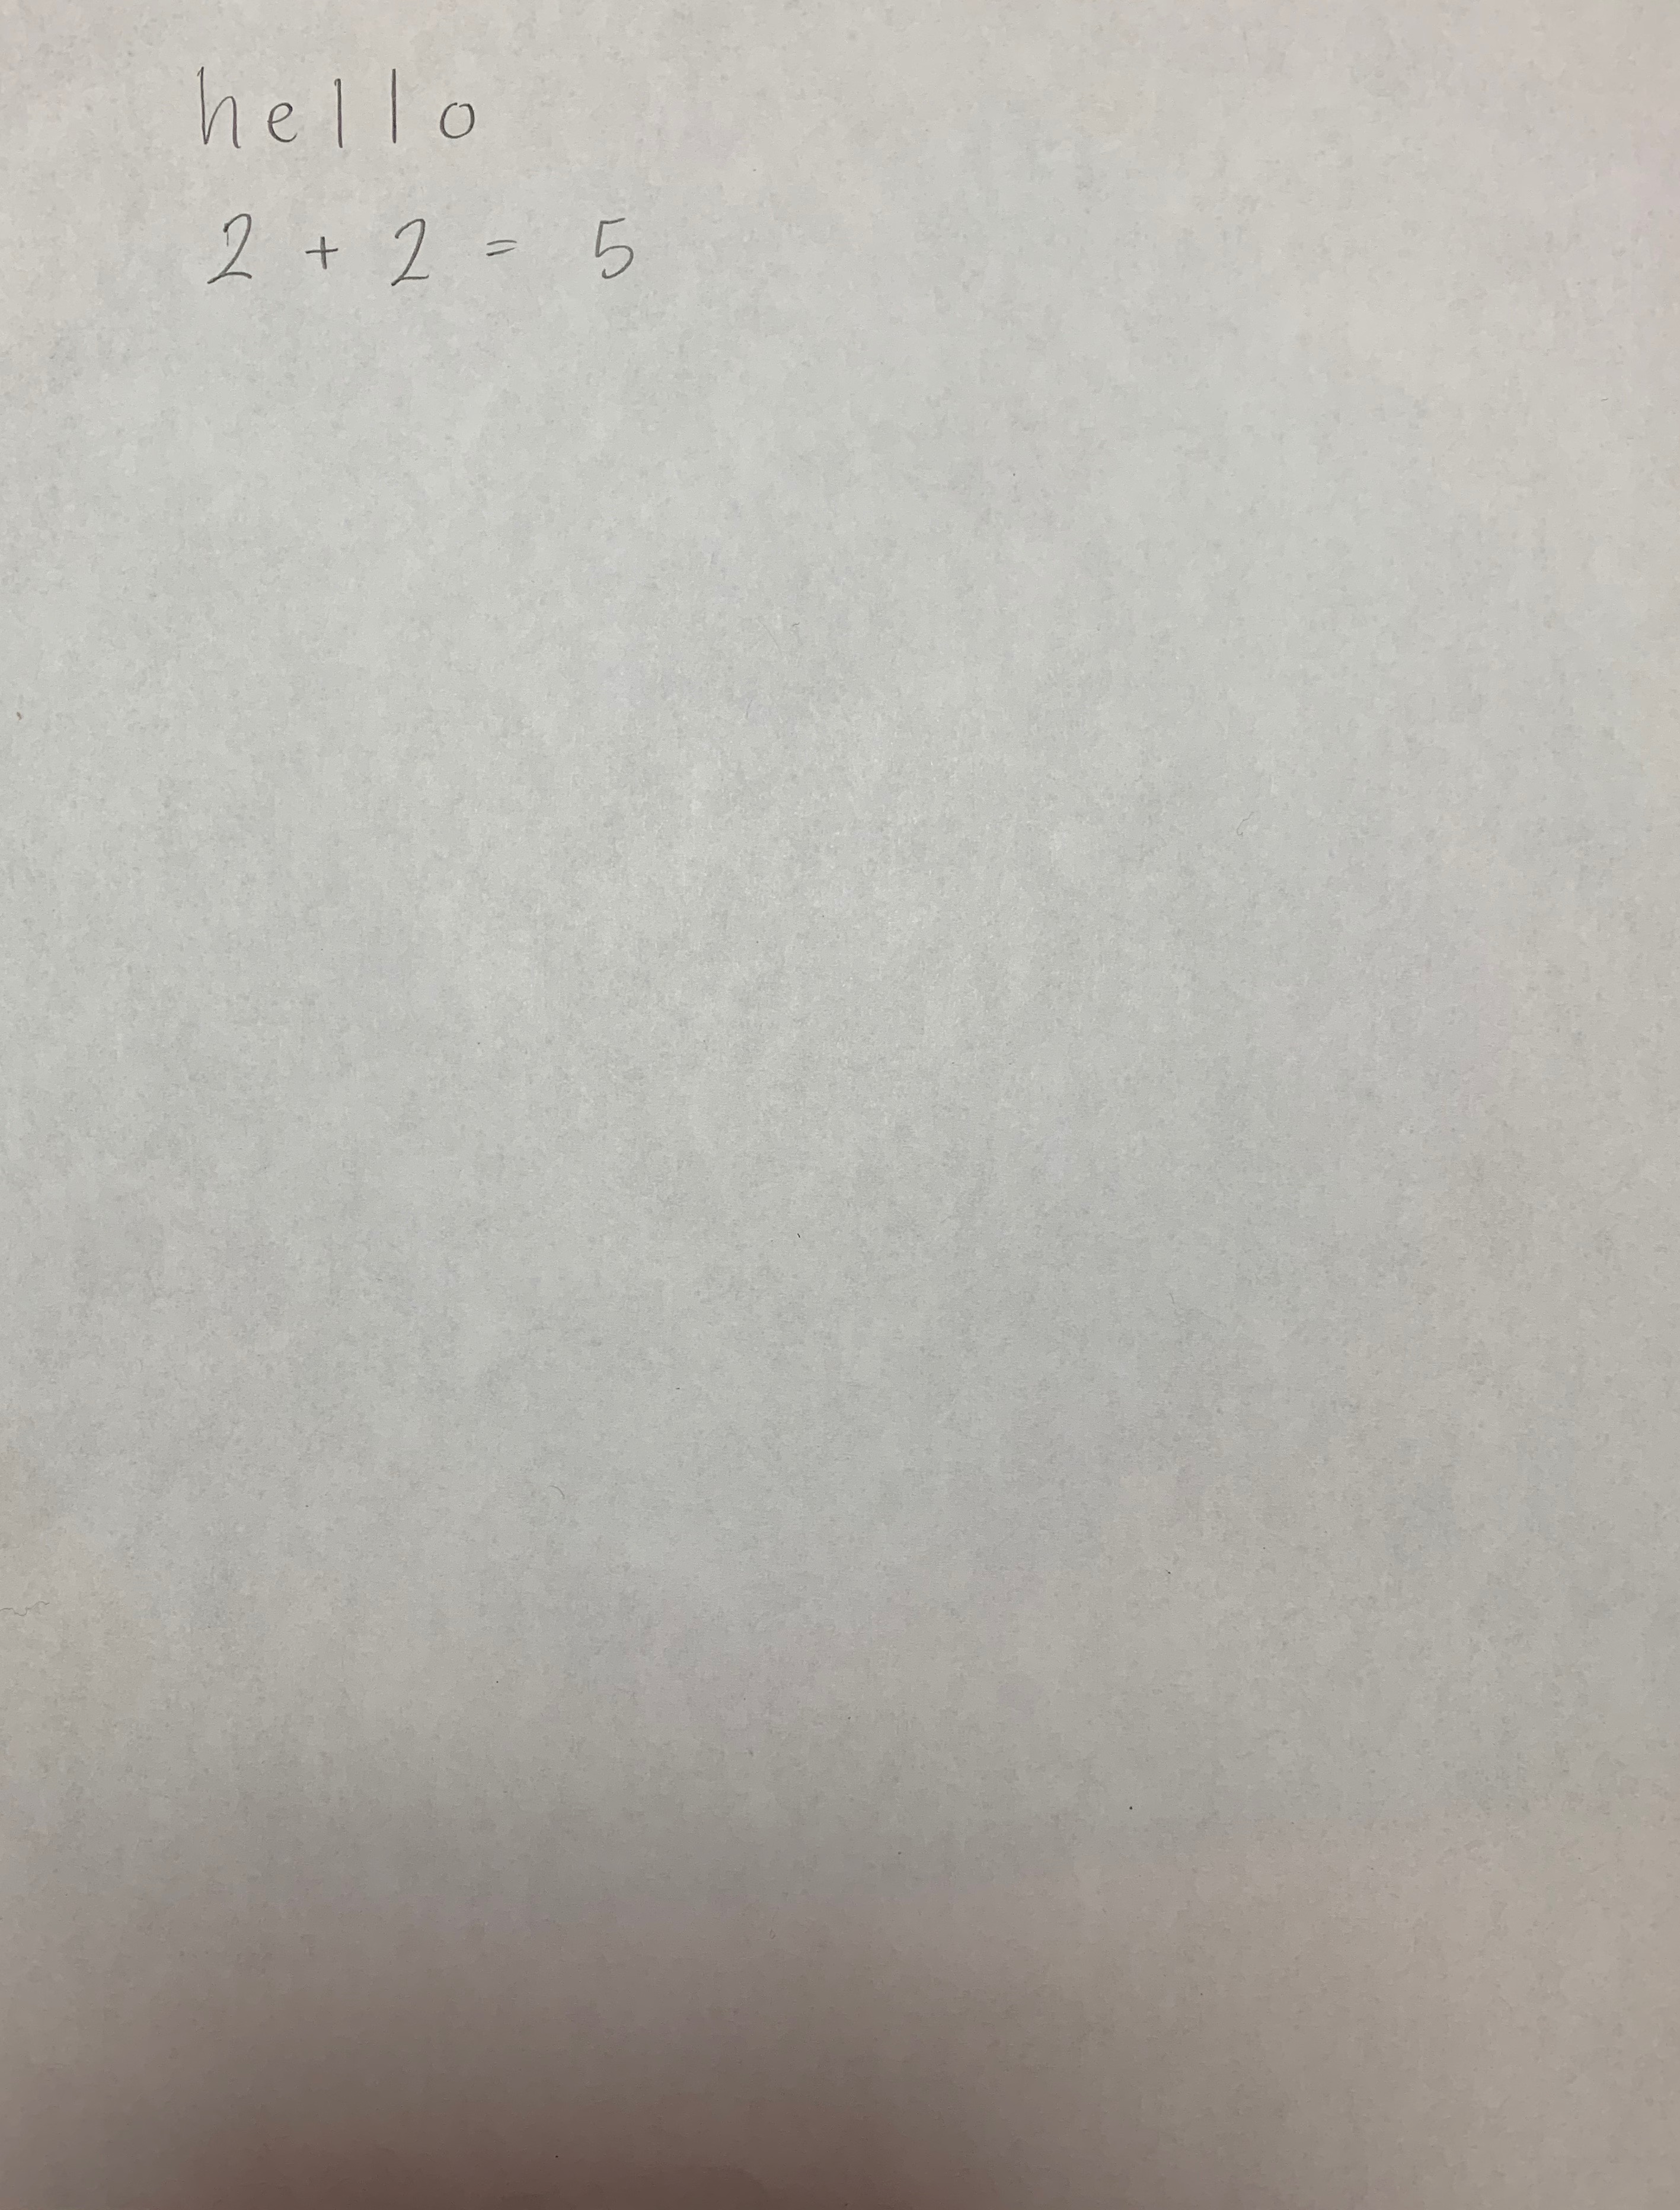 hello
2 + 2 = 5